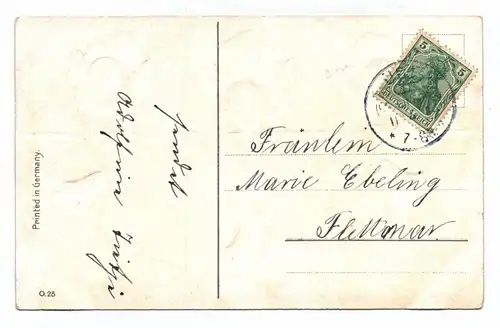 sendet
Printed in Germany.
O.28
5
DEUTSCHES REICH
* 7-8
Fräulein
Marie Ebeling
Flettmar